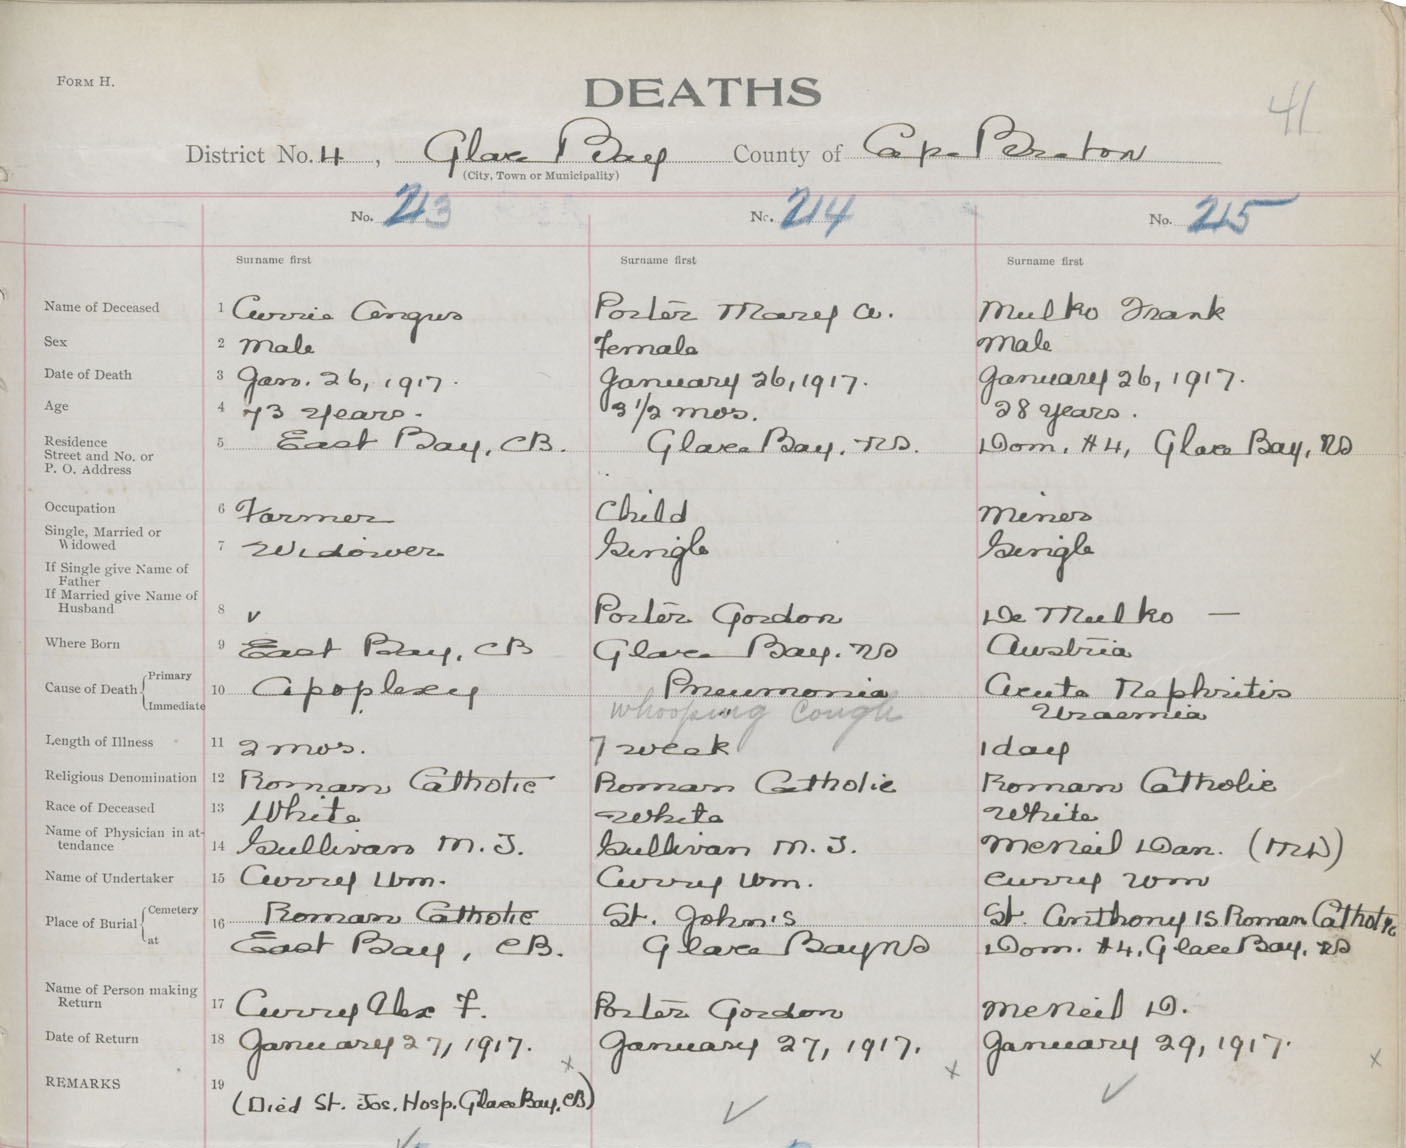 FORM H.
DEATHS
41
District No. 4, Glace Bay County of Cape Breton
(City, Town or Municipality)
No. 213 No. 214 No. 215
Surname first Surname first Surname first
Name of Deceased 1 Currie Angus Porter Mary A. Mulko Frank
Sex 2 Male Female Male
Date of Death 3 Jan. 26, 1917. January 26, 1917. January 26, 1917.
Age 4 73 years. 3 1/2 mos. 28 years.
Residence 5 East Bay, CB. Glace Bay, NS. Dom. #4, Glace Bay, NS
Street and No. or
P. O. Address
Occupation 6 Farmer Child Miner
Single, Married or
Widowed 7 Widower Single Single
If Single give Name of
Father
If Married give Name of
Husband 8 v Porter Gordon De Mulko —
Where Born 9 East Bay, CB Glace Bay. NS Austria
Cause of Death { Primary 10 Apoplexy Pneumonia Acute Nephritis
Immediate Whooping Cough Uraemia
Length of Illness 11 2 mos. 7 week 1 day
Religious Denomination 12 Roman Catholic Roman Catholic Roman Catholic
Race of Deceased 13 White White White
Name of Physician in at-
tendance 14 Sullivan M. J. Sullivan M. J. McNeil Dan. (MD)
Name of Undertaker 15 Curry Wm. Curry Wm. Curry Wm
Place of Burial { Cemetery 16 Roman Catholic St. John's St. Anthony's Roman Catholic
at East Bay, CB. Glace Bay NS Dom. #4, Glace Bay, NS
Name of Person making
Return 17 Curry Alex F. Porter Gordon McNeil D.
Date of Return 18 January 27, 1917. x January 27, 1917. x January 29, 1917. x
REMARKS 19 (Died St. Jos. Hosp. Glace Bay, CB)